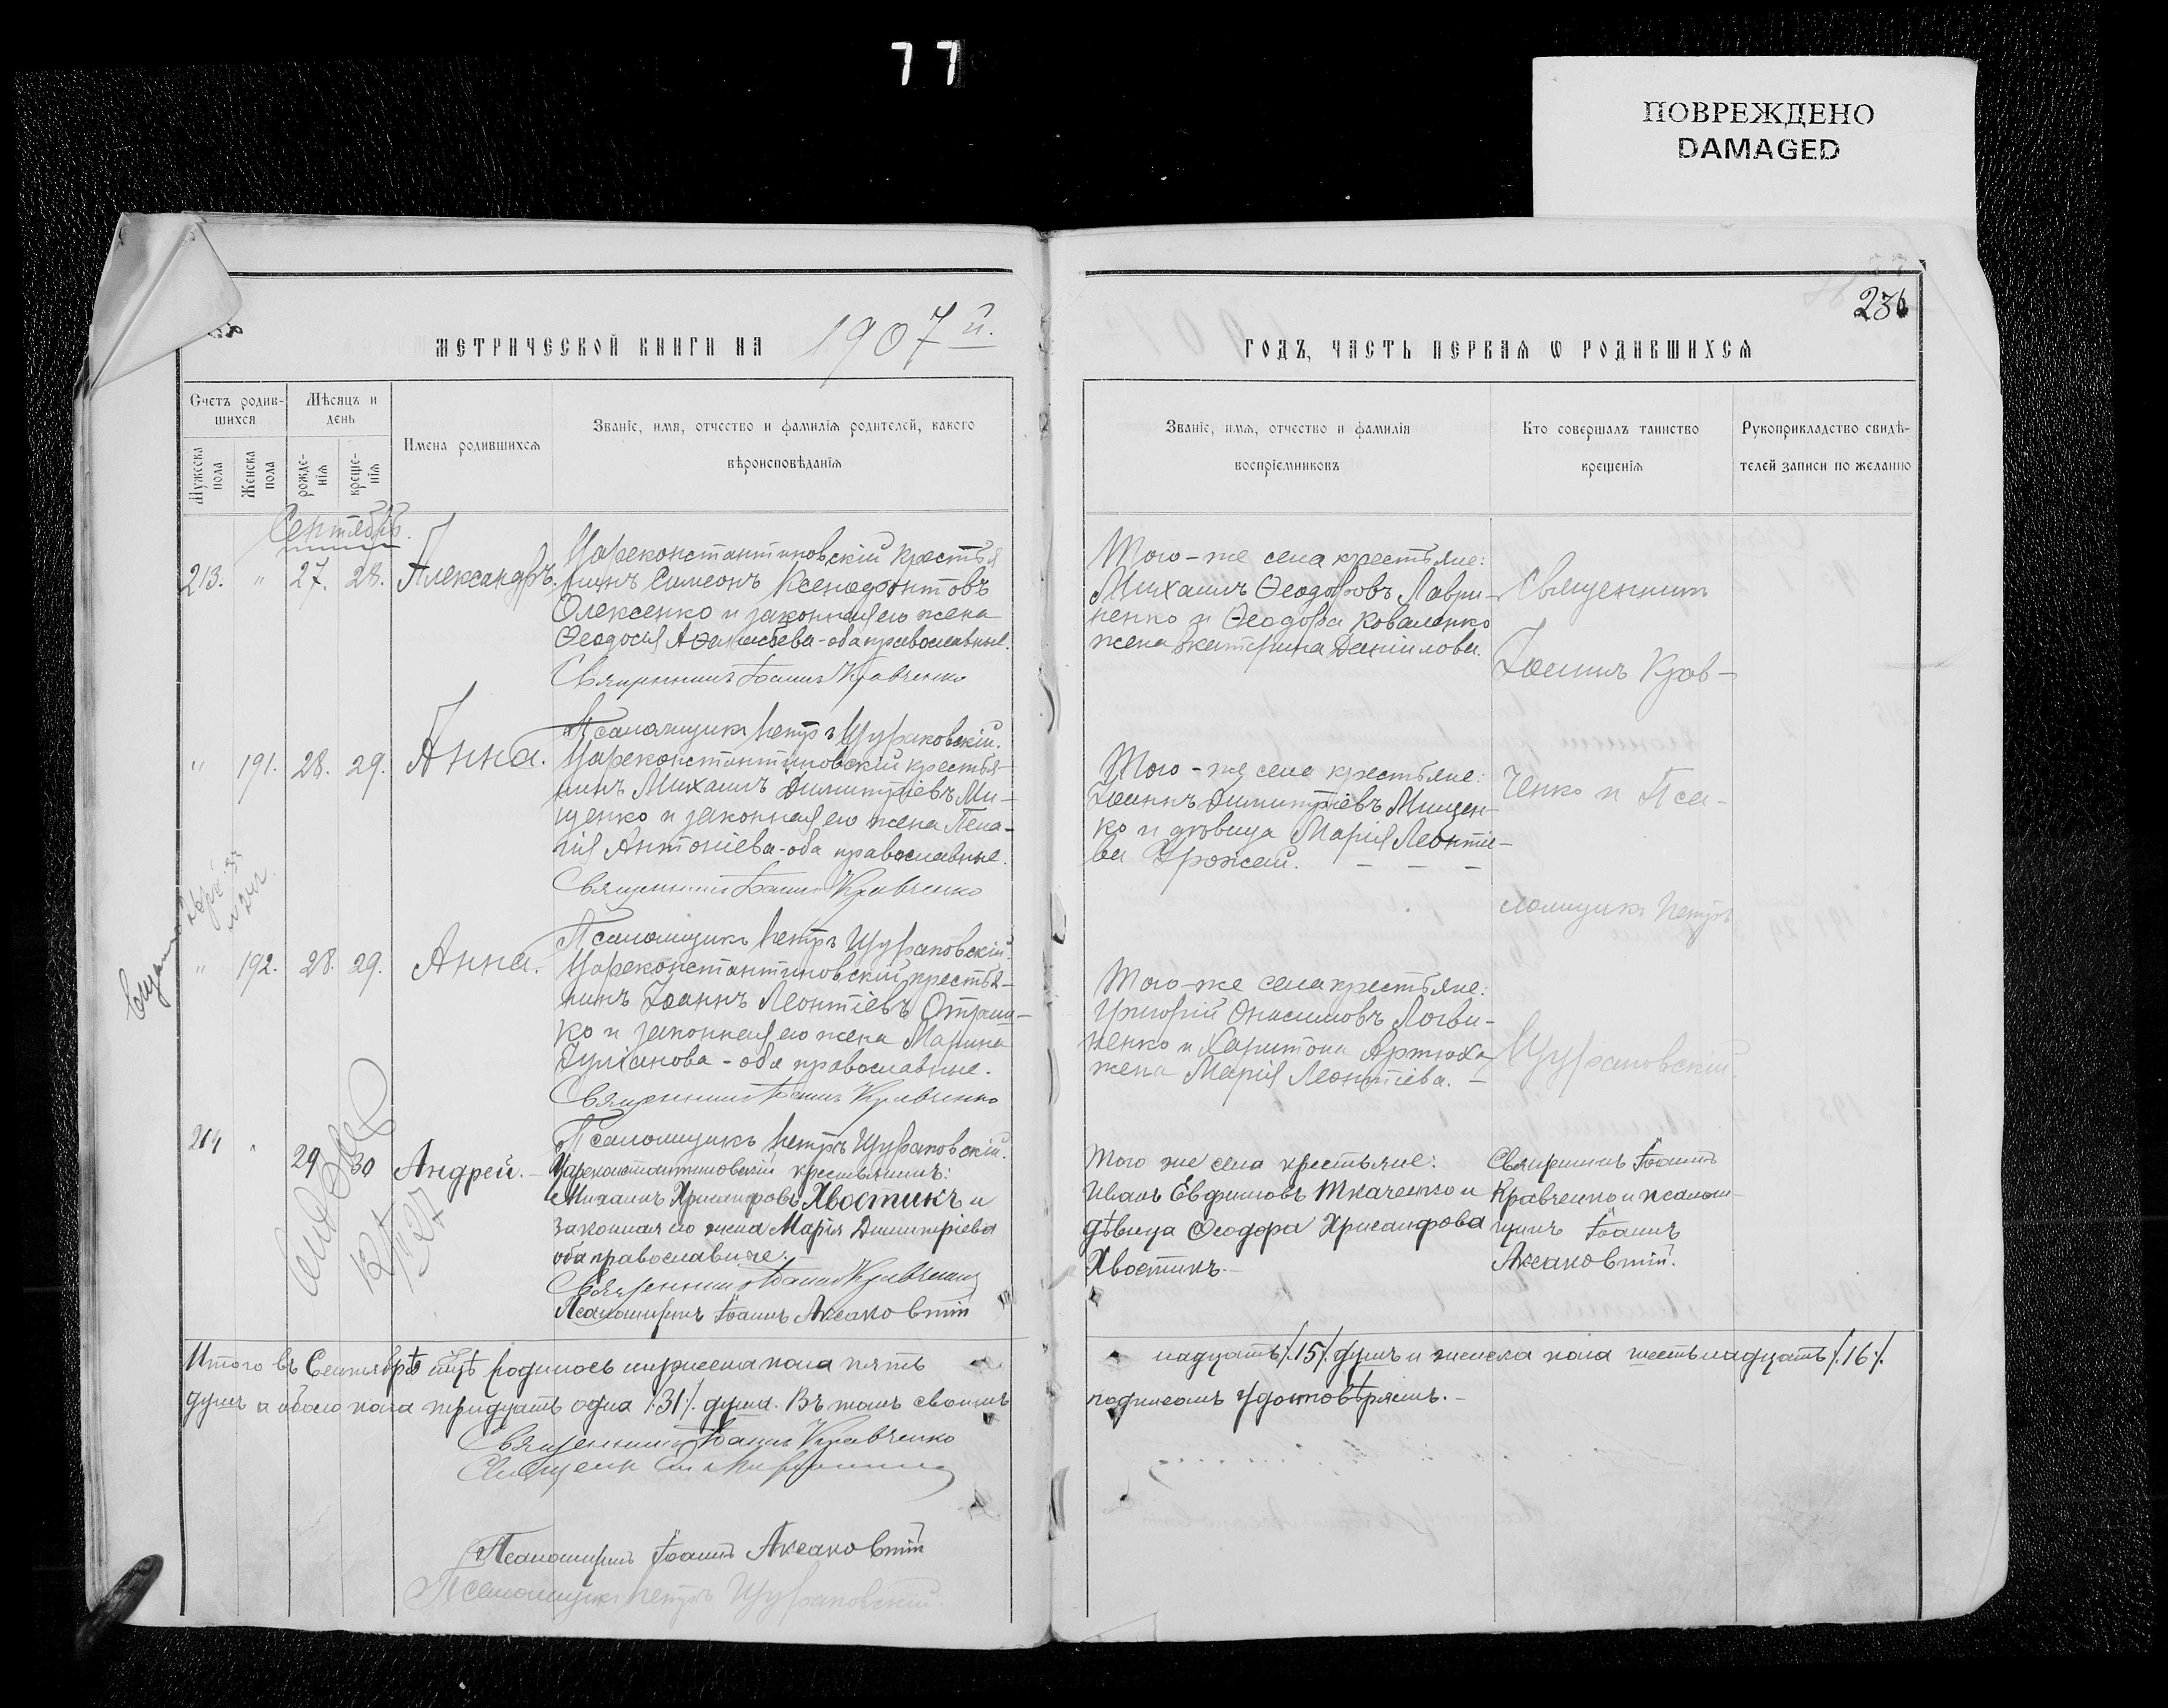 77
ПОВРЕЖДЕНО
DAMAGED
236
МЕТРИЧЕСКОЙ КНИГИ НА 1907й.
ГОДЪ, ЧАСТЬ ПЕРВАЯ Ѡ РОДИВШИХСЯ
Счетъ родив-
шихся
Мужеска пола
Женска пола
Мѣсяцъ и
день
рожде-
нія
креще-
нія
Имена родившихся
Званіе, имя, отчество и фамилія родителей, какого
вѣроисповѣданія
Званіе, имя, отчество и фамилія
воспріемниковъ
Кто совершалъ таинство
крещенія
Рукоприкладство свидѣ-
телей записи по желанію
Сентябрь.
213. " 27. 28. Александръ.
Цареконстантиновскій крестья
нинъ Симеонъ Ксенофонтовъ
Олексенко и законная его жена
Ѳеодосія Аѳанасьева - оба православные.
Священникъ Іоаннъ Кравченко
Псаломщикъ Петръ Щураковскій.
Того-же села крестьяне:
Михаилъ Ѳеодоровъ Лаври-
ненко и Ѳеодора Коваленко
жена Екатерина Даніилова.
Священникъ
Іоаннъ Крав-
ченко и Пса-
ломщикъ Петръ
Щураковскій.
" 191. 28. 29. Анна.
Цареконстантиновскій крестья-
нинъ Михаилъ Димитріевъ Ми-
щенко и законная его жена Пела-
гія Антоніева - оба православные.
Священникъ Іоаннъ Кравченко
Псаломщикъ Петръ Щураковскій.
Того-же села крестьяне:
Іоаннъ Димитріевъ Мищен-
ко и дѣвица Марія Леонтіе-
ва Урожай. - - -
" 192. 28. 29. Анна.
Цареконстантиновскій крестья-
нинъ Іоаннъ Леонтіевъ
ко и законная его жена Марина
Іуліанова - оба православные.
Священникъ Іоаннъ Кравченко
Псаломщикъ Петръ Щураковскій.
Того-же села крестьяне:
Григорій Онисимовъ Логви-
ненко и Харитона Артюха
жена Марія Леонтіева. -
214 " 29 30 Андрей. -
Цареконстантиновскій крестьянинъ:
Михаилъ Хрисанфовъ Хвостикъ и
законная его жена Марія Димитріева
оба православные. -
Священникъ Іоаннъ Кравченко
Псаломщикъ Іоаннъ
Того же села крестьяне:
Иванъ Евфимовъ Ткаченко и
дѣвица Ѳеодора Хрисанфова
Хвостикъ. -
Священникъ Іоаннъ
Кравченко и псалом-
щикъ Іоаннъ
Итого въ Сентябрѣ мцѣ родилось мужеска пола пять
надцать /.15/. душъ и женска пола шестьнадцать /.16/.
душъ а обоего пола тридцать одна /.31/. душа. Въ томъ своимъ
подписомъ удостовѣряемъ. -
Священникъ Іоаннъ Кравченко
Псаломщикъ Іоаннъ
Псаломщикъ Петръ Щураковскій.